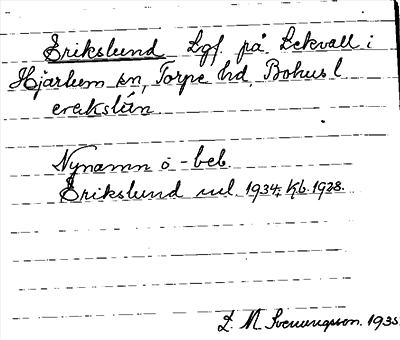 Erikslund Lgf. på Lekvall i
Hjärtum sn, Torpe hd, Bohusl
erekslún
Nynamn o-beb.
Erikslund nul. 1934; Kb. 1928.
D. M. Svenungsson. 1935.